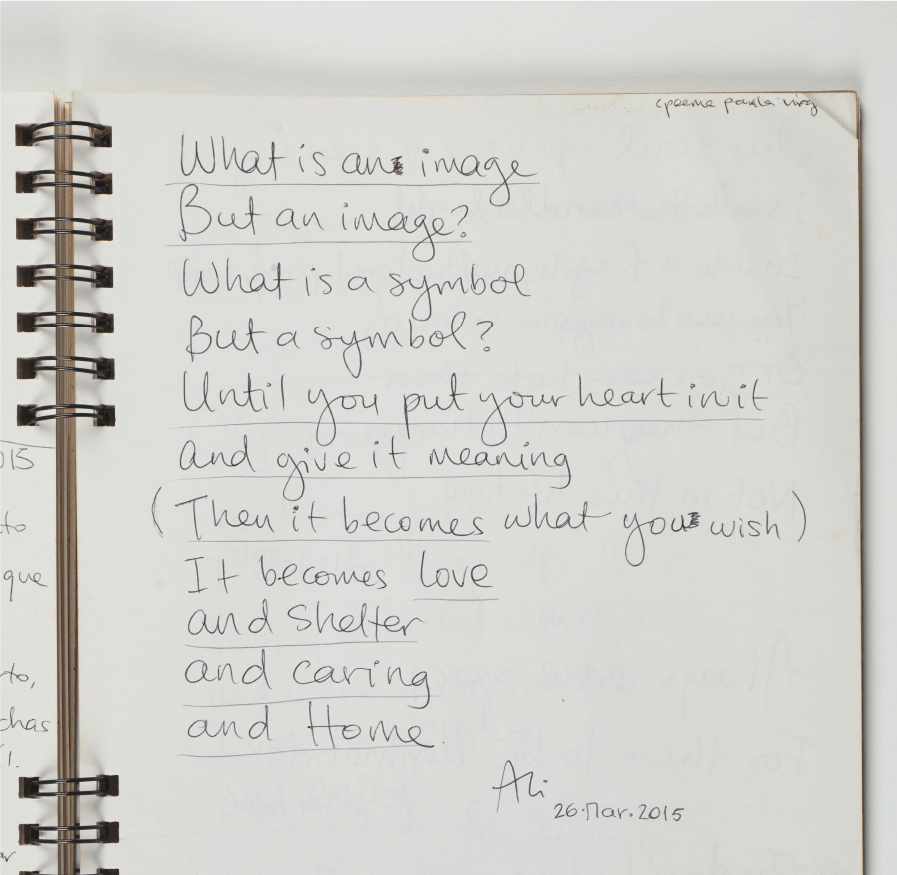 What is an image
But an image?
What is a symbol
But a symbol?
Until you put your heart in it
and give it meaning
(Then it becomes what you wish)
It becomes love
and Shelter
and caring
and Home.
Ali
26.Mar.2015
015
to
que
to,
chas